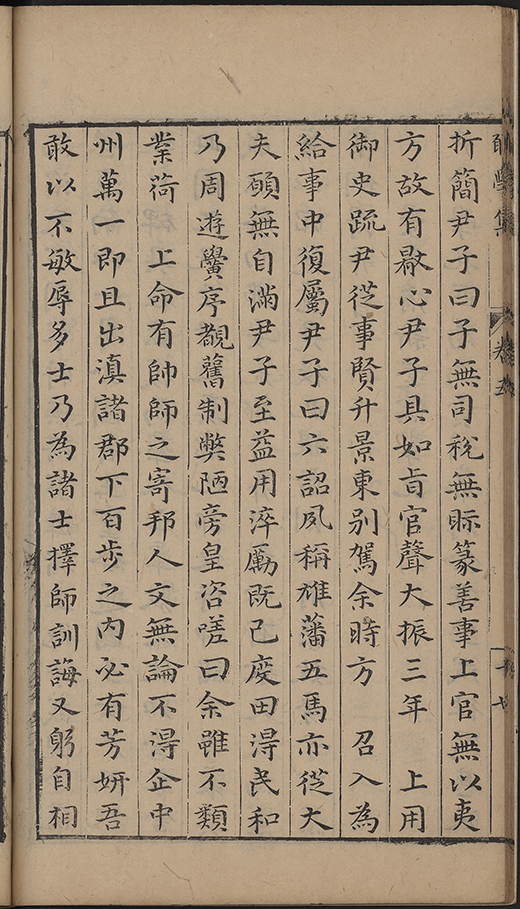 學集
卷五
十七
折簡尹子曰子無司稅無眎篆善事上官無以夷
方故有歝心尹子具如㫖官聲大振三年　上用
御史䟽尹從事賢升景東别駕余時方　召入為
給事中復屬尹子曰六詔夙稱雄藩五馬亦從大
夫頋無自滿尹子至益用淬勵既已度田得民和
乃周遊黌序覩舊制獘陋旁皇咨嗟曰余雖不類
業荷　上命有帥師之寄邦人文無論不得企中
州萬一即且出滇諸郡下百步之内必有芳妍吾
敢以不敏辱多士乃為諸士擇師訓誨又躬自相